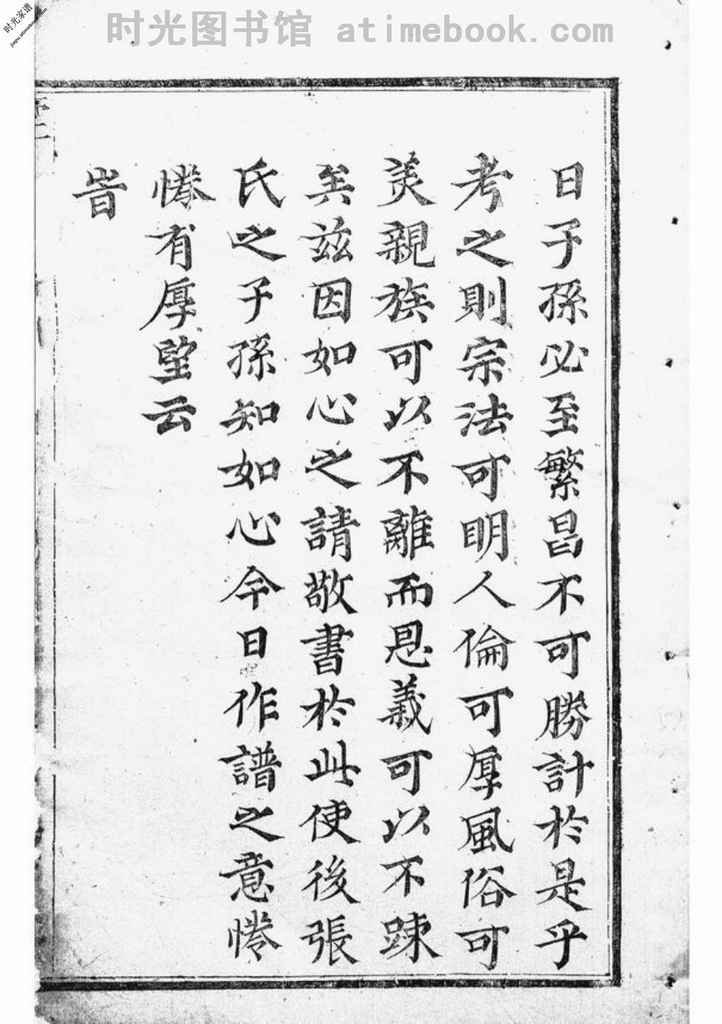 时光图书馆 atimebook.com
时光家谱
日子孫必至繁昌不可勝計於是乎
考之則宗法可明人倫可厚風俗可
美親族可以不離而恩義可以不踈
矣兹因如心之請敬書於此使後張
氏之子孫知如心今日作譜之意惓
惓有厚望云
旹